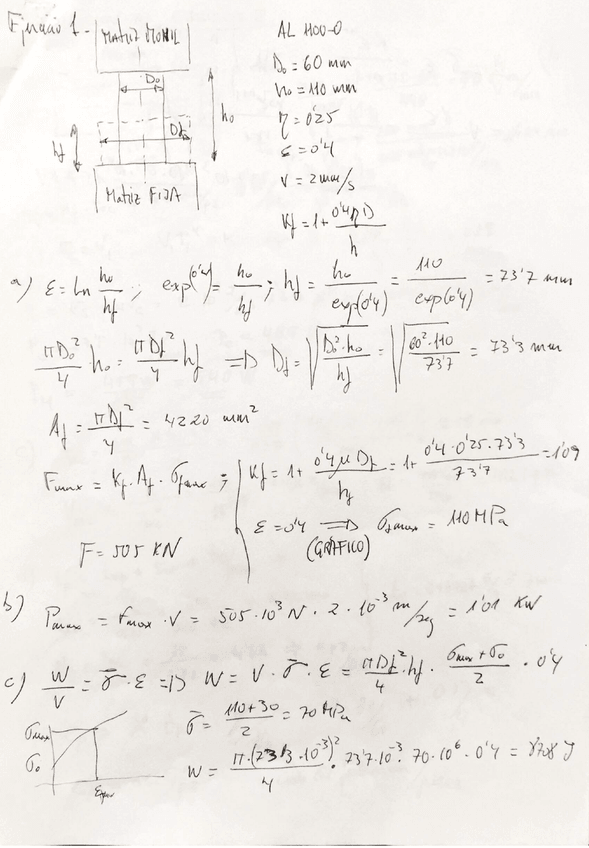 Ejercicio 1.-
MATRIZ MOVIL
D₀
h₀
Df
hf
Matriz FIJA
AL 1100-O
D₀ = 60 mm
h₀ = 110 mm
η = 0'25
ε = 0'4
v = 2 mm/s
Kf = 1 + 0'4 η D / h
a) ε = Ln h₀/hf ; exp(0'4) = h₀/hf ; hf = h₀/exp(0'4) = 110/exp(0'4) = 73'7 mm
πD₀²/4 h₀ = πDf²/4 hf => Df = √(D₀²·h₀/hf) = √(60²·110/73'7) = 73'3 mm
Af = πDf²/4 = 4220 mm²
Fmax = Kf · Af · σfmax ; Kf = 1 + 0'4 μ Df/hf = 1 + 0'4·0'25·73'3/73'7 = 1'09
ε = 0'4 => (GRÁFICO) σfmax = 110 MPa
F = 505 KN
b) Pmax = Fmax · v = 505·10³ N · 2·10⁻³ m/seg = 1'01 KW
c) W/V = σ̄·ε => W = V·σ̄·ε = πDf²/4 · hf · (σmax + σ₀)/2 · 0'4
σmax
σ₀
σ̄ = (110+30)/2 = 70 MPa
W = π·(73'3·10⁻³)²/4 · 73'7·10⁻³ · 70·10⁶ · 0'4 = 8708 J